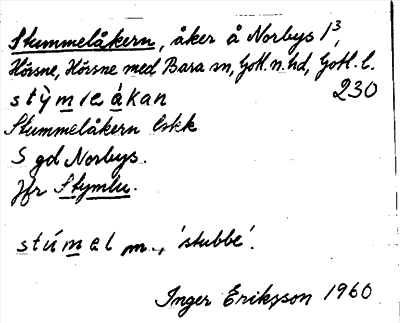 Stummelåkern, åker å Norbys 1³,
Hörsne, Hörsne med Bara sn, Gotl. n. hd, Gotl. l.
stỳmleákan 230
Stummelåkern lskk
S gd Norbys.
Jfr Stymlu.
stúmel m., 'stubbe'.
Inger Eriksson 1960